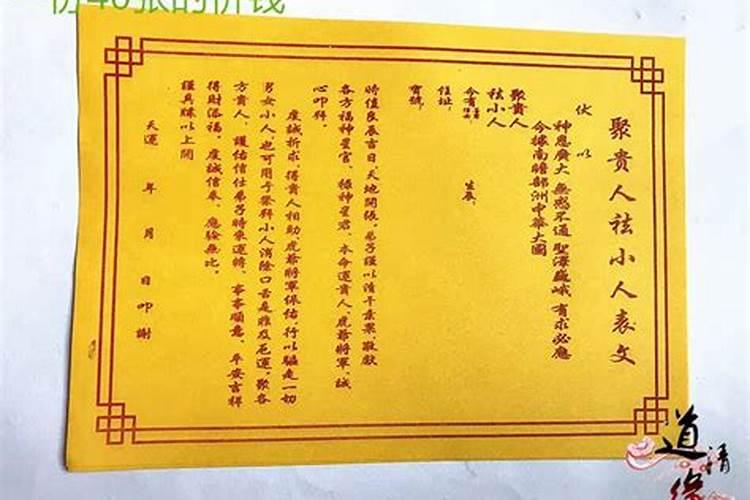 份40张的价钱
聚貴人祛小人表文
伏以
神恩廣大 無感不通 聖澤巍峨 有求必應
今據南瞻部洲中華大國
聚貴人
祛小人
今有
住址
生辰
寶號
時值良辰吉日，天地開張，弟子謹以清干素果敬獻
各方福神星官、祿神星君、本命運貴人、虎爺將軍，誠
心叩拜。
虔誠祈求，得貴人相助，虎爺將軍保佑，行以驅走一切
男女小人，也可用于祭拜小人消除口舌是非及厄運，聚各
方貴人，護佑信仕弟子時來運轉、事事順意、平安吉祥
得財添福，虔誠信奉，應驗無比。
謹具牒以上聞
天運 年 月 日叩謝
道清缘